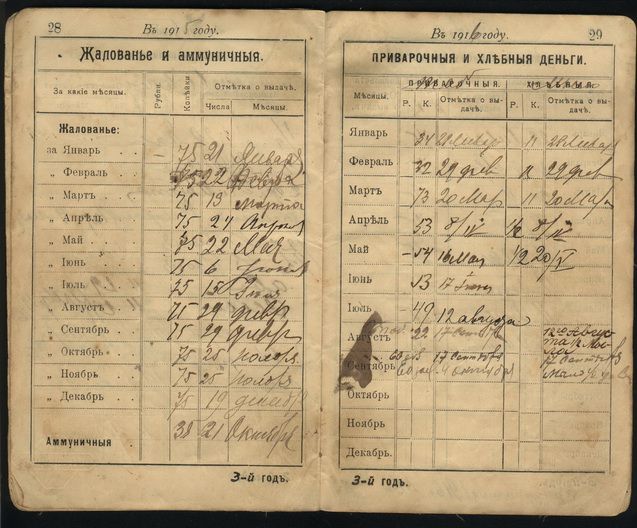 28 Въ 1915 году.
Жалованье и аммуничныя.
За какіе мѣсяцы. Рубли. Копѣйки. Отмѣтка о выдачѣ.
Числа Мѣсяцы.
Жалованье:
за Январь . . — 75 21 Января
„ Февраль . . 75 22
„ Мартъ . . 75 19 марта
„ Апрѣль . . 75 24 Апреля
„ Май . . 75 22 Мая
„ Іюнь . . 75 6 Іюня
„ Іюль . . 75 15 Іюля
„ Августъ . . 75 29 февр
„ Сентябрь . . 75 29 февр
„ Октябрь . . 75 25 ноября
„ Ноябрь . . 75 25 ноября
„ Декабрь . . 75 19 декабря
Аммуничныя 38 21 Октября
3-й годъ.
Въ 1916 году. 29
ПРИВАРОЧНЫЯ И ХЛѢБНЫЯ ДЕНЬГИ.
Мѣсяцы. ПРИВАРОЧНЫЯ. ХЛѢБНЫЯ.
Р. К. Отмѣтка о выдачѣ. Р. К. Отмѣтка о выдачѣ.
Январь 34 28 Января 11 28 Января
Февраль 32 29 фев 11 29 фев
Мартъ 73 20 Мар 11 20 Мар
Апрѣль 53 8/IV 1/2 8/IV
Май — 54 16 Мая 1/2 20/V
Іюнь 53 17 Іюня
Іюль — 49 12 августа
Августъ 22 17 Сентяб
Сентябрь 17 Сентября 17 Сентября
4 октября
Октябрь
Ноябрь
Декабрь.
3-й годъ.